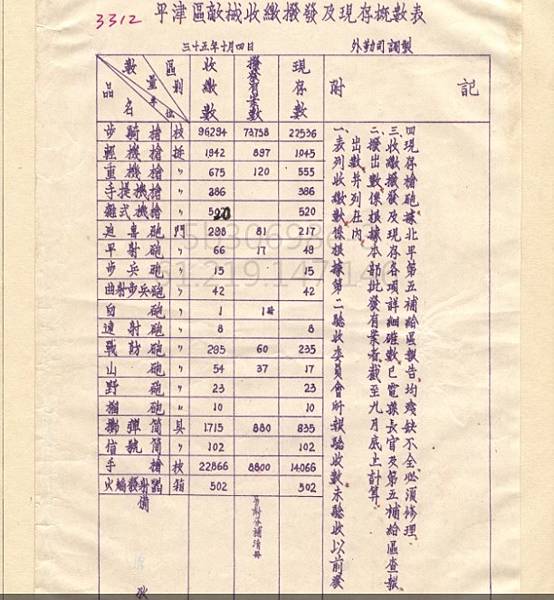 3312
平津區敵械收繳撥發及現存概數表
三十五年十月四日 外勤司調製
品名 數量 單位 區別 收繳數 撥發有案數 現存數 附記
步騎槍 枝 96294 73758 22536
輕機槍 挺 1942 897 1045
重機槍 〃 675 120 555
手提機槍 〃 386 386
雜式機槍 〃 520 520
迫擊砲 門 298 81 217
平射砲 〃 66 17 48
步兵砲 〃 15 15
曲射步兵砲 〃 42 42
臼砲 〃 1
速射砲 〃 8 8
戰防砲 〃 295 60 235
山砲 〃 54 37 17
野砲 〃 23 23
榴砲 〃 10 10
擲彈筒 具 1715 880 835
信號筒 〃 102 102
手槍 枝 22866 8800 14066
火焰發射器 箱 502 502
備
一、表列收繳數係根據第二驗收委員會所報驗收數未驗收以前發
出數并列在內
二、撥出數係根據本部批發有案者截至九月底止計算
三、收繳撥發及現存各項詳細確數已電孫長官及第五補給區查報
四、現存槍砲據北平第五補給區報告均殘缺不全必須修理